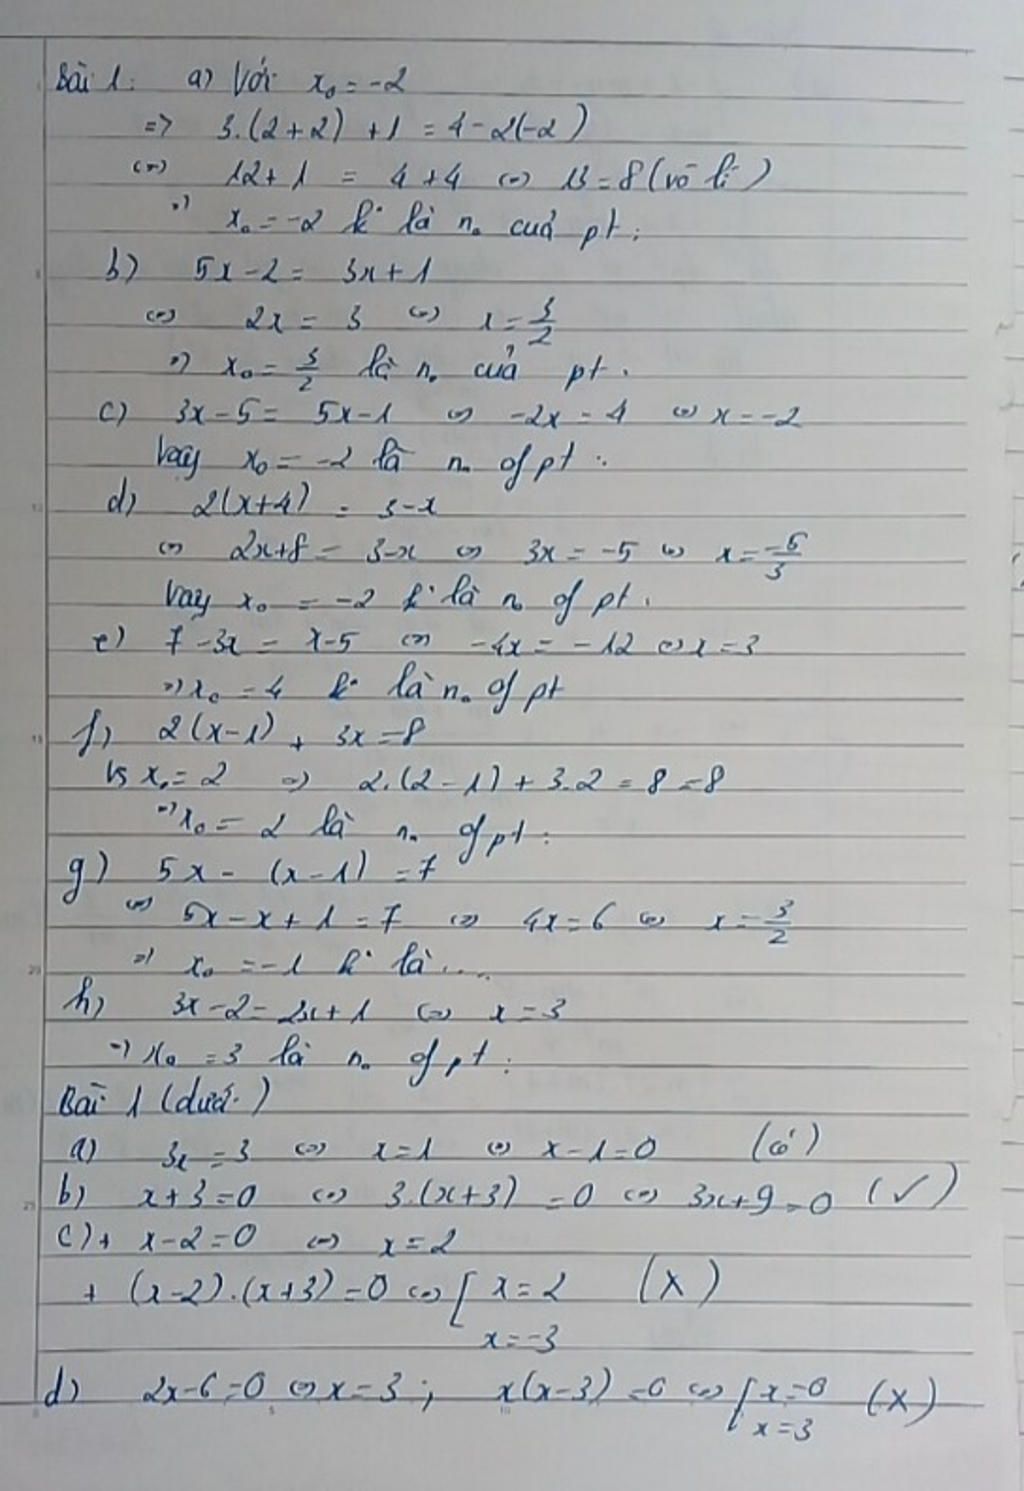 Bài 1: a) Với x₀ = -2
=> 3.(2+2) + 1 = 4 - 2(-2)
<=> 12 + 1 = 4 + 4 <=> 13 = 8 (vô lí)
=> x₀ = -2 k° là n₀ cuả pt.
b) 5x - 2 = 3x + 1
<=> 2x = 3 <=> x = 3/2
=> x₀ = 3/2 là n₀ cuả pt.
c) 3x - 5 = 5x - 1 <=> -2x = 4 <=> x = -2
Vậy x₀ = -2 là n₀ of pt.
d) 2(x+4) = 3-x
<=> 2x+8 = 3-x <=> 3x = -5 <=> x = -5/3
Vậy x₀ = -2 k° là n₀ of pt.
e) 7 - 3x = x - 5 <=> -4x = -12 <=> x = 3
=> x₀ = 4 k° là n₀ of pt
f) 2(x-1) + 3x = 8
Vs x₀ = 2 => 2.(2-1) + 3.2 = 8 = 8
=> x₀ = 2 là n₀ of pt.
g) 5x - (x-1) = 7
<=> 5x - x + 1 = 7 <=> 4x = 6 <=> x = 3/2
=> x₀ = -1 k° là ....
h) 3x - 2 = 2x + 1 <=> x = 3
=> x₀ = 3 là n₀ of pt.
Bài 1 (dưới)
a) 3x = 3 <=> x = 1 <=> x - 1 = 0 (có)
b) x + 3 = 0 <=> 3.(x+3) = 0 <=> 3x + 9 = 0 (✓)
c) + x - 2 = 0 <=> x = 2
+ (x-2).(x+3) = 0 <=> [ x = 2 (X)
x = -3
d) 2x - 6 = 0 <=> x = 3 ; x(x-3) = 0 <=> [ x = 0 (X)
x = 3